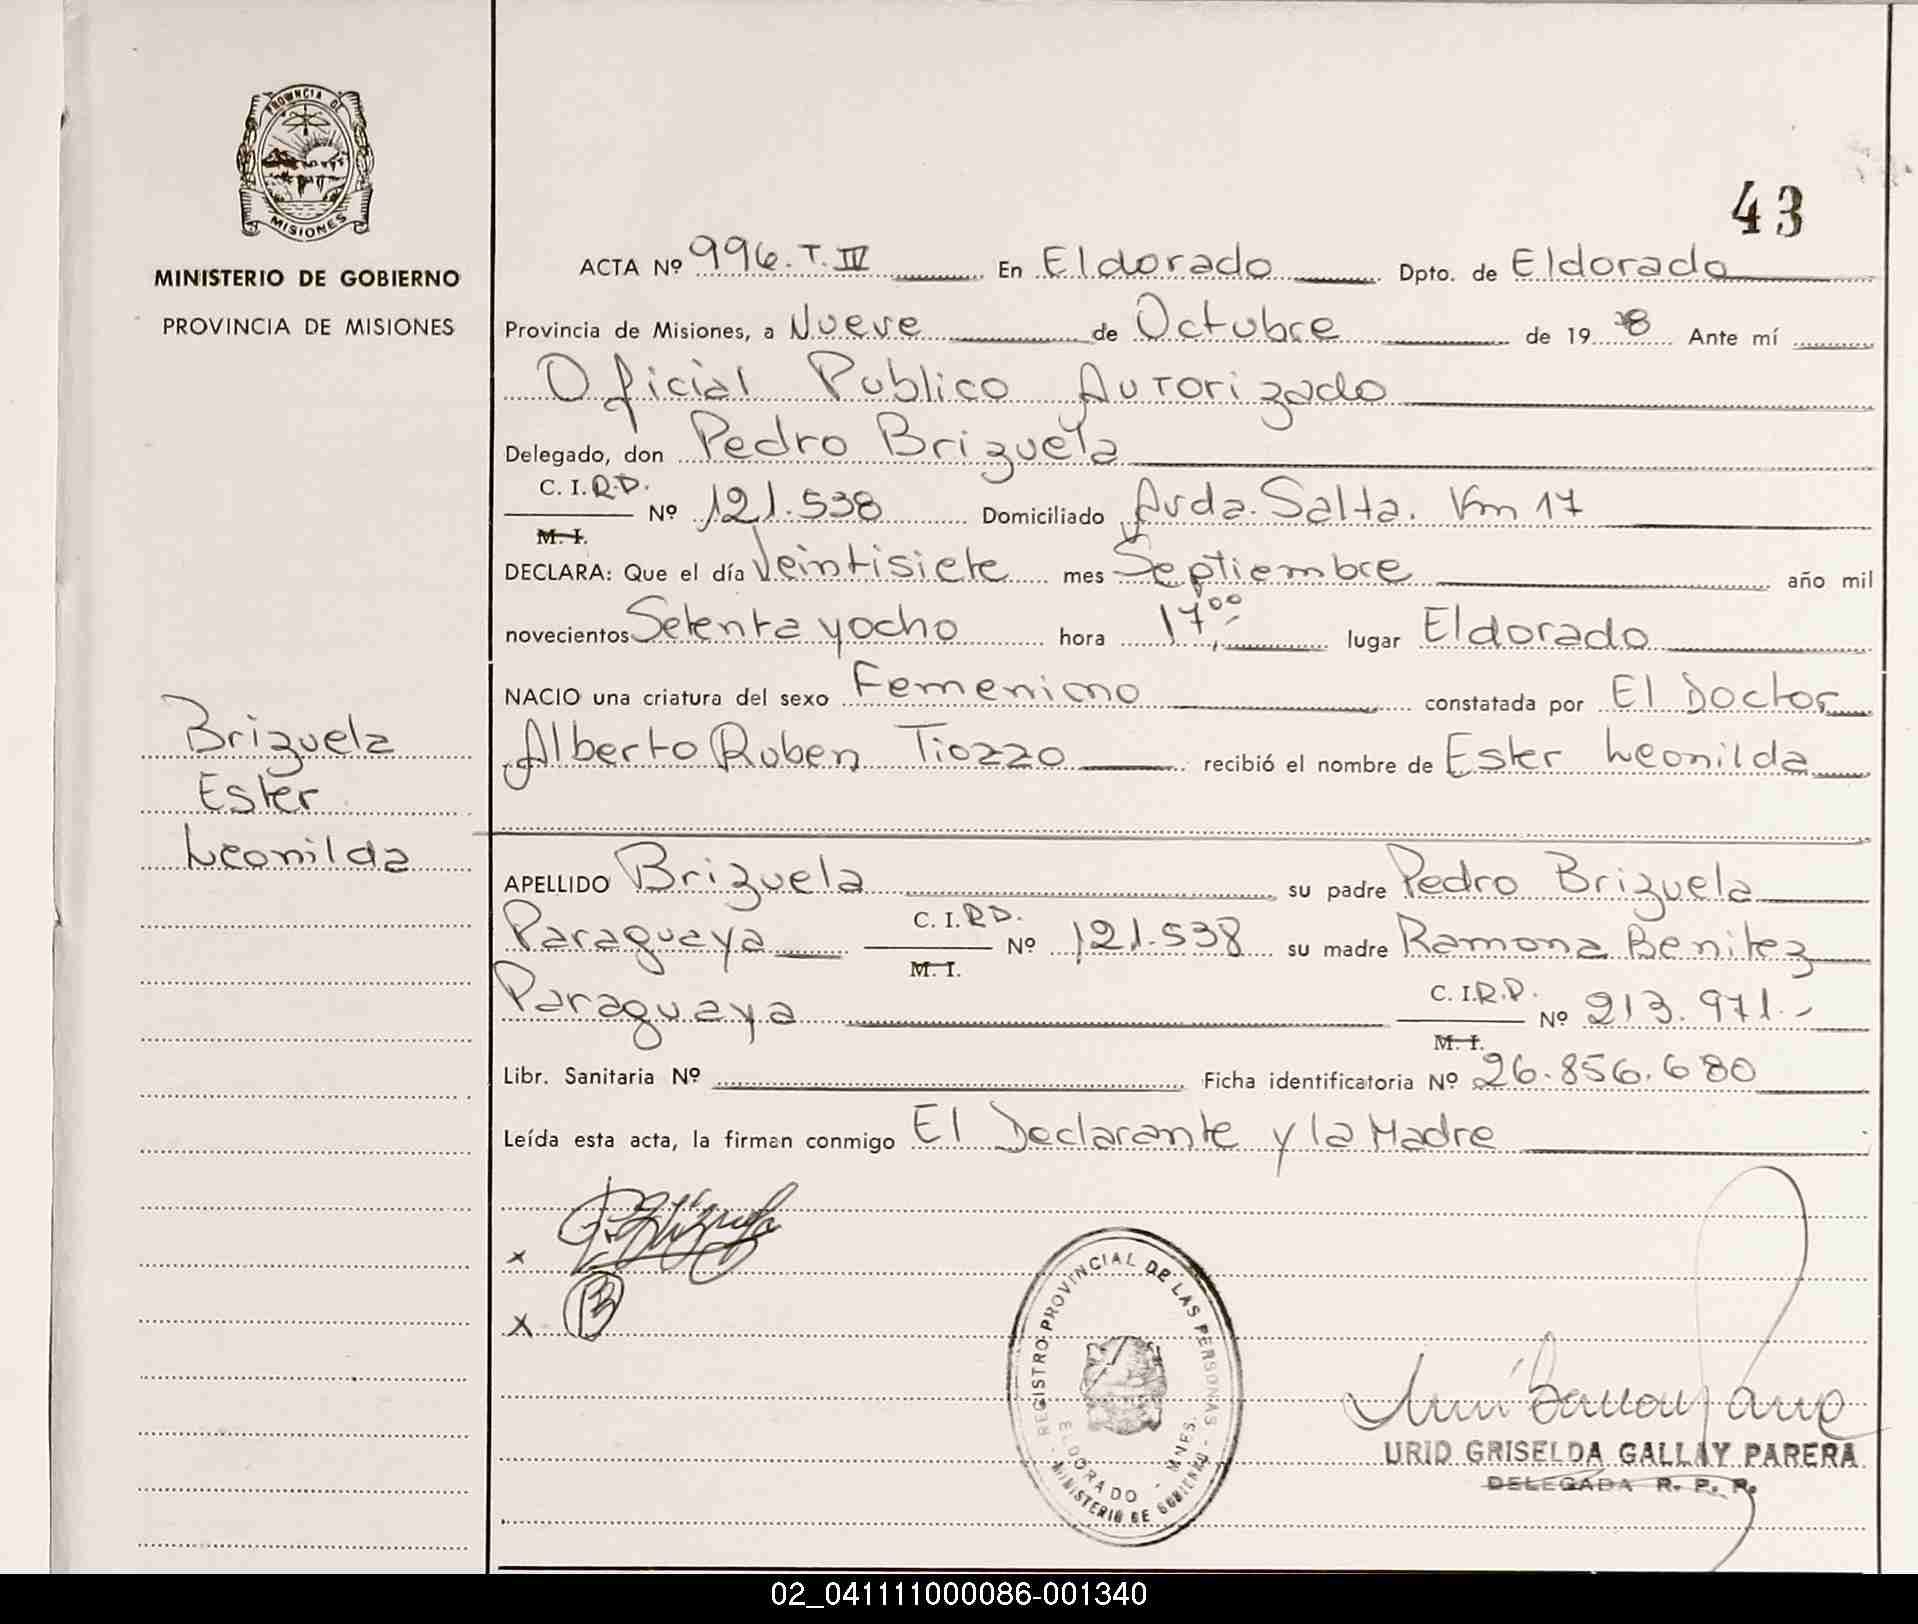 PROVINCIA DE
MISIONES
MINISTERIO DE GOBIERNO
PROVINCIA DE MISIONES
Brizuela
Ester
Leonilda
43
ACTA Nº 996. T. IV En Eldorado Dpto. de Eldorado
Provincia de Misiones, a Nueve de Octubre de 19 78 Ante mí
Oficial Publico Autorizado
Delegado, don Pedro Brizuela
C. I.R.D.
M. I. Nº 121.538 Domiciliado Avda. Salta. Km 17
DECLARA: Que el día Veintisiete mes Septiembre año mil
novecientos Setenta y ocho hora 17,00 lugar Eldorado
NACIO una criatura del sexo Femenino constatada por El Doctor
Alberto Ruben Tiozzo recibió el nombre de Ester Leonilda
APELLIDO Brizuela su padre Pedro Brizuela
Paraguaya C. I.R.D. M. I. Nº 121.538 su madre Ramona Benitez
Paraguaya C. I.R.D. M. I. Nº 213.971.-
Libr. Sanitaria Nº Ficha identificatoria Nº 26.856.680
Leída esta acta, la firman conmigo El Declarante y la Madre
x P. Brizuela
x B
REGISTRO PROVINCIAL DE LAS PERSONAS
ELDORADO - MNES.
MINISTERIO DE GOBIERNO
URID GRISELDA GALLAY PARERA
DELEGADA R. P. P.
02_041111000086-001340